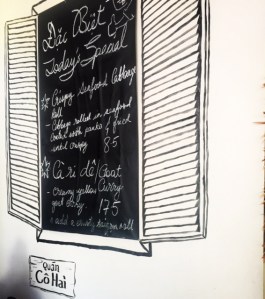 Đặc Biệt
Today's Special
Crispy seafood Cabbage
Roll
- Cabbage rolled in seafood
coated with panko & fried
until crispy
85
Cà ri dê / Goat
Curry
- creamy yellow
175